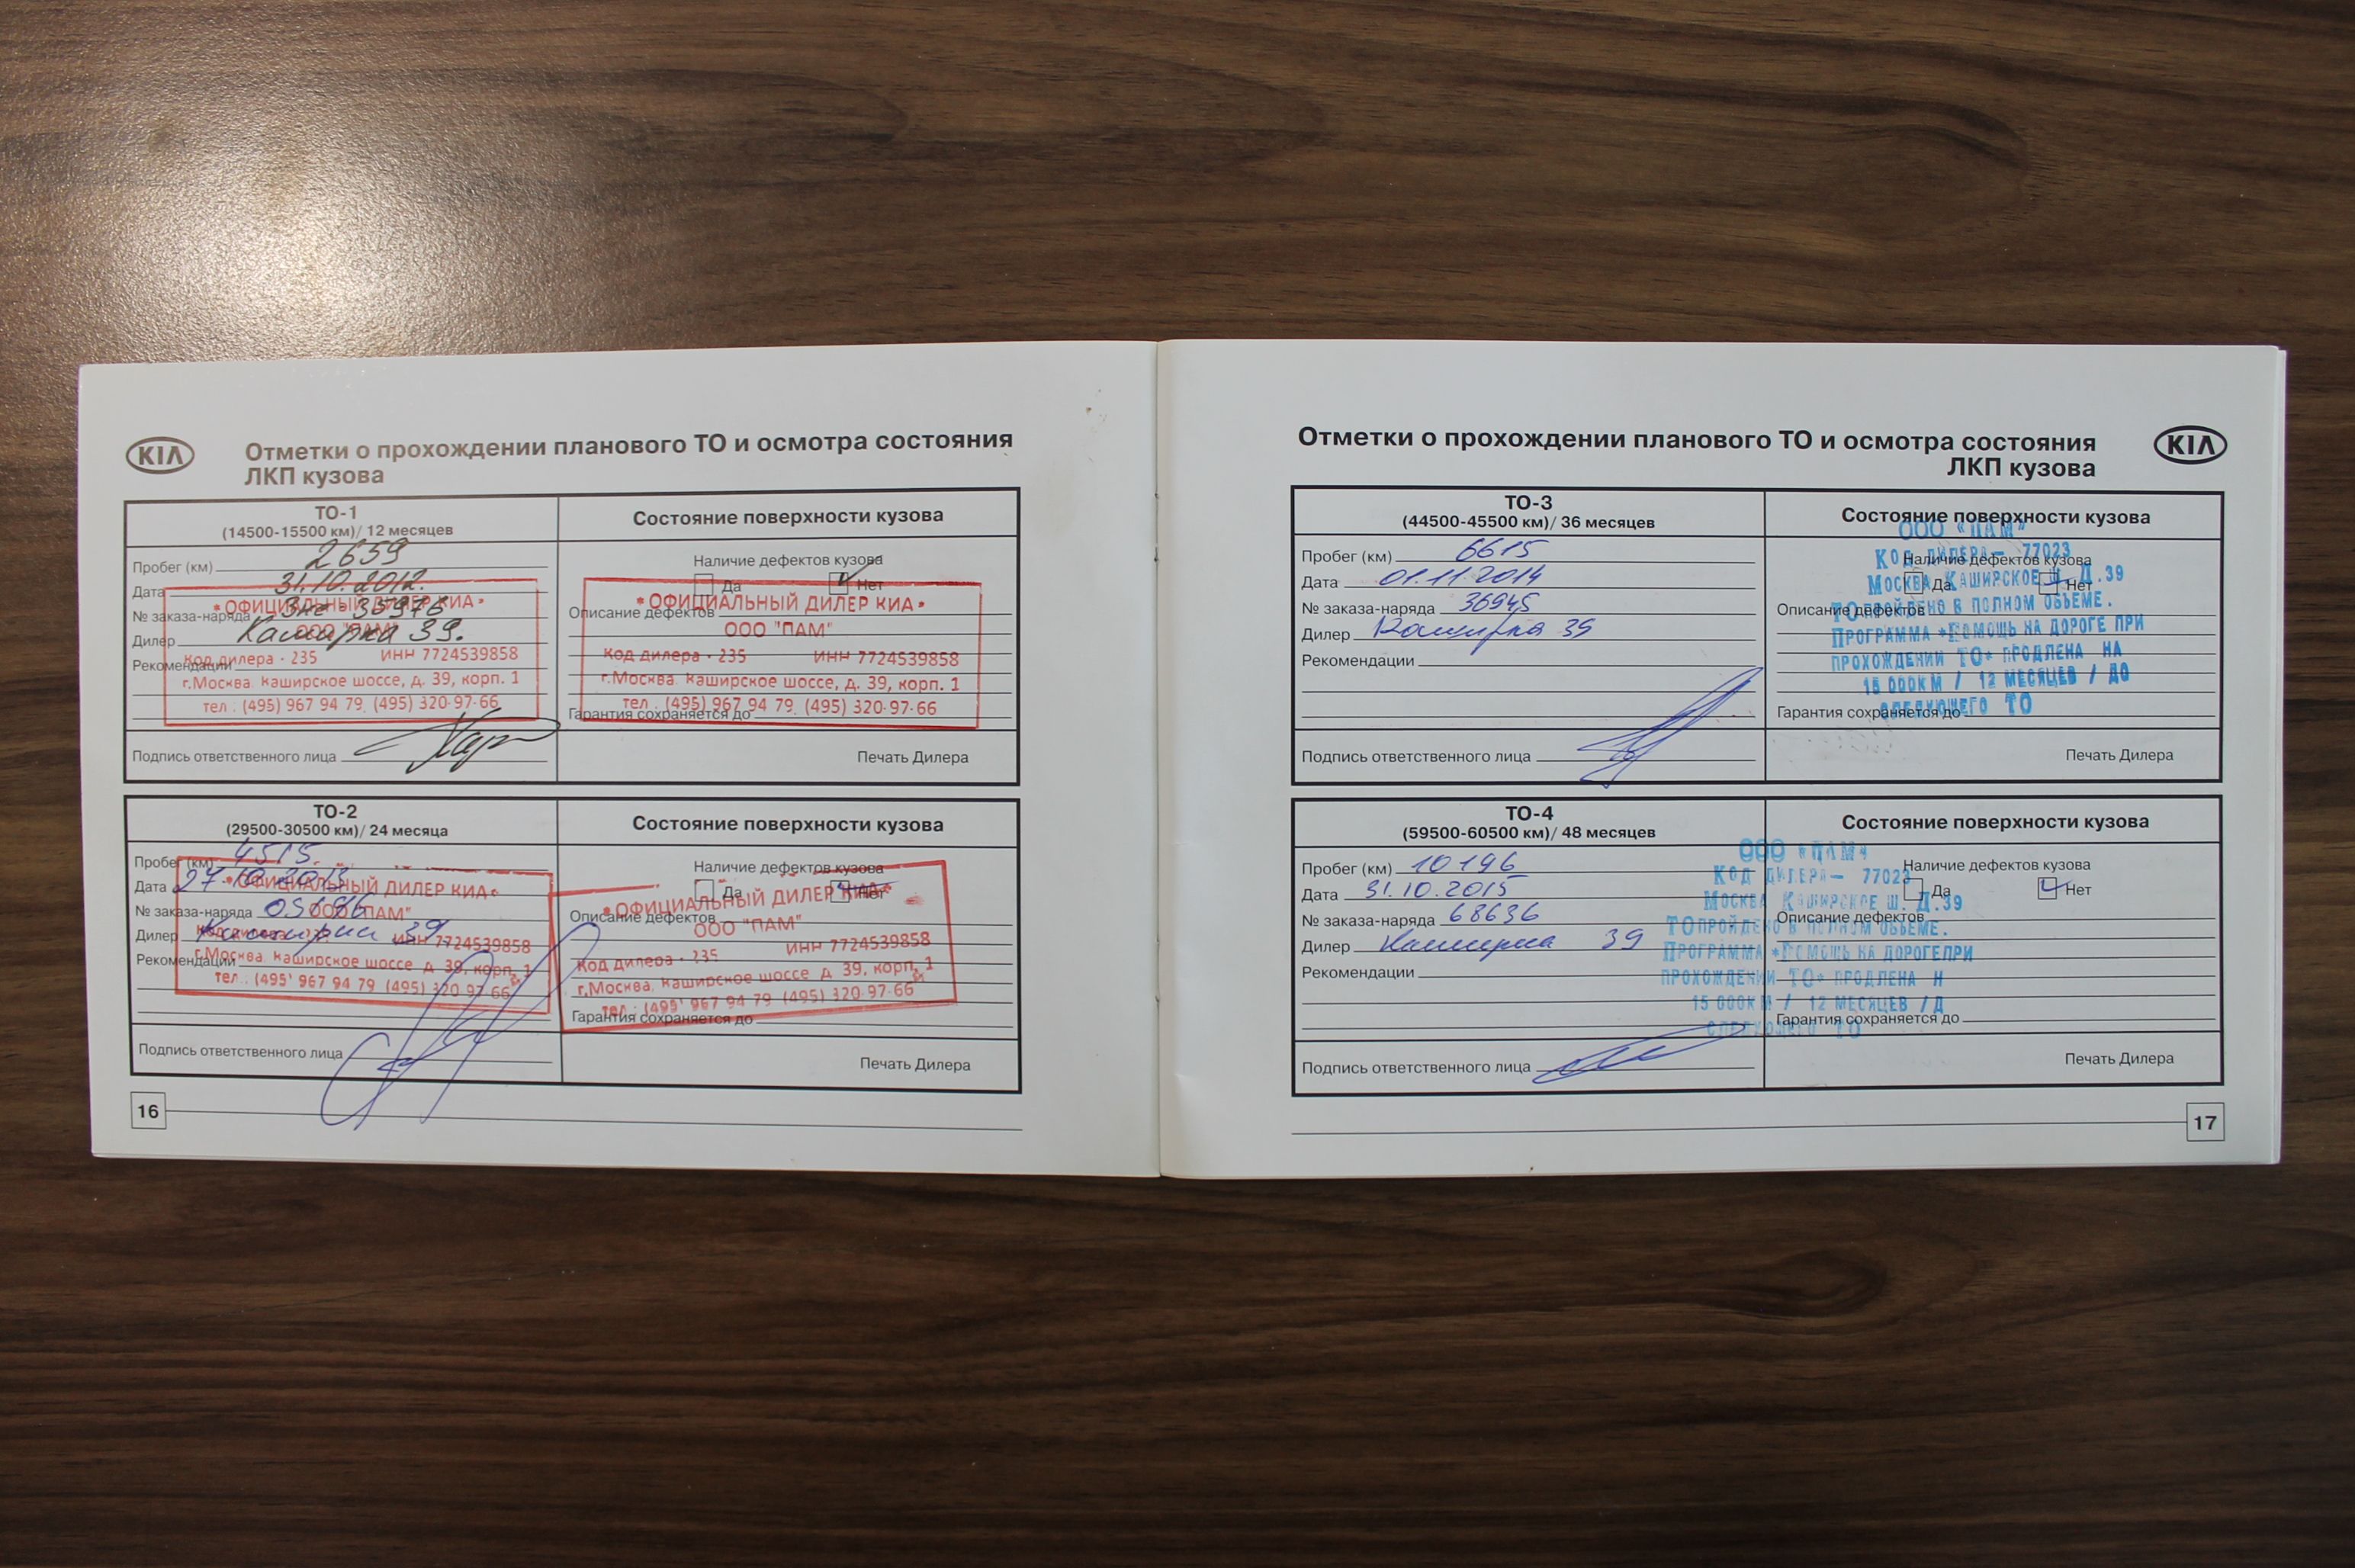 KIA
Отметки о прохождении планового ТО и осмотра состояния
ЛКП кузова
ТО-1
(14500-15500 км)/ 12 месяцев
Состояние поверхности кузова
Пробег (км) 2659
Наличие дефектов кузова
Дата 31.10.2012.
Да Нет
№ заказа-наряда 35976
Описание дефектов
Дилер Каширка 39.
Рекомендации
Гарантия сохраняется до
•ОФИЦИАЛЬНЫЙ ДИЛЕР КИА•
ООО "ПАМ"
Код дилера - 235 ИНН 7724539858
г.Москва. Каширское шоссе, д. 39, корп. 1
тел.: (495) 967 94 79, (495) 320-97-66
•ОФИЦИАЛЬНЫЙ ДИЛЕР КИА•
ООО "ПАМ"
Код дилера - 235 ИНН 7724539858
г.Москва. Каширское шоссе, д. 39, корп. 1
тел.: (495) 967 94 79, (495) 320-97-66
Подпись ответственного лица
Печать Дилера
ТО-2
(29500-30500 км)/ 24 месяца
Состояние поверхности кузова
Пробег (км) 4515
Наличие дефектов кузова
Дата 27.10.2013
Да Нет
№ заказа-наряда
Описание дефектов
Дилер Каширка 39
Рекомендации
Гарантия сохраняется до
•ОФИЦИАЛЬНЫЙ ДИЛЕР КИА•
ООО "ПАМ"
ИНН 7724539858
г.Москва. Каширское шоссе д. 39, корп. 1
тел.: (495) 967 94 79 (495) 320-97-66
•ОФИЦИАЛЬНЫЙ ДИЛЕР КИА•
ООО "ПАМ"
Код дилера - 235 ИНН 7724539858
г.Москва. Каширское шоссе д. 39, корп. 1
тел.: (495) 967 94 79 (495) 320-97-66
Подпись ответственного лица
Печать Дилера
16
Отметки о прохождении планового ТО и осмотра состояния
ЛКП кузова
KIA
ТО-3
(44500-45500 км)/ 36 месяцев
Состояние поверхности кузова
Пробег (км) 6615
Наличие дефектов кузова
Дата 01.11.2014
Да Нет
№ заказа-наряда 36945
Описание дефектов
Дилер Каширка 39
Рекомендации
Гарантия сохраняется до
ООО «ПАМ»
КОД ДИЛЕРА— 77023
МОСКВА КАШИРСКОЕ Ш. Д.39
ТО ПРОЙДЕНО В ПОЛНОМ ОБЪЕМЕ.
ПРОГРАММА «ПОМОЩЬ НА ДОРОГЕ ПРИ
ПРОХОЖДЕНИИ ТО» ПРОДЛЕНА НА
15 000КМ / 12 МЕСЯЦЕВ / ДО
СЛЕДУЮЩЕГО ТО
Подпись ответственного лица
Печать Дилера
ТО-4
(59500-60500 км)/ 48 месяцев
Состояние поверхности кузова
Пробег (км) 10196
Наличие дефектов кузова
Дата 31.10.2015
Да Нет
№ заказа-наряда 68636
Описание дефектов
Дилер Каширка 39
Рекомендации
Гарантия сохраняется до
ООО «ПАМ»
КОД ДИЛЕРА— 77023
МОСКВА КАШИРСКОЕ Ш. Д.39
ТО ПРОЙДЕНО В ПОЛНОМ ОБЪЕМЕ.
ПРОГРАММА «ПОМОЩЬ НА ДОРОГЕ ПРИ
ПРОХОЖДЕНИИ ТО» ПРОДЛЕНА Н
15 000КМ / 12 МЕСЯЦЕВ / Д
СЛЕДУЮЩЕГО ТО
Подпись ответственного лица
Печать Дилера
17